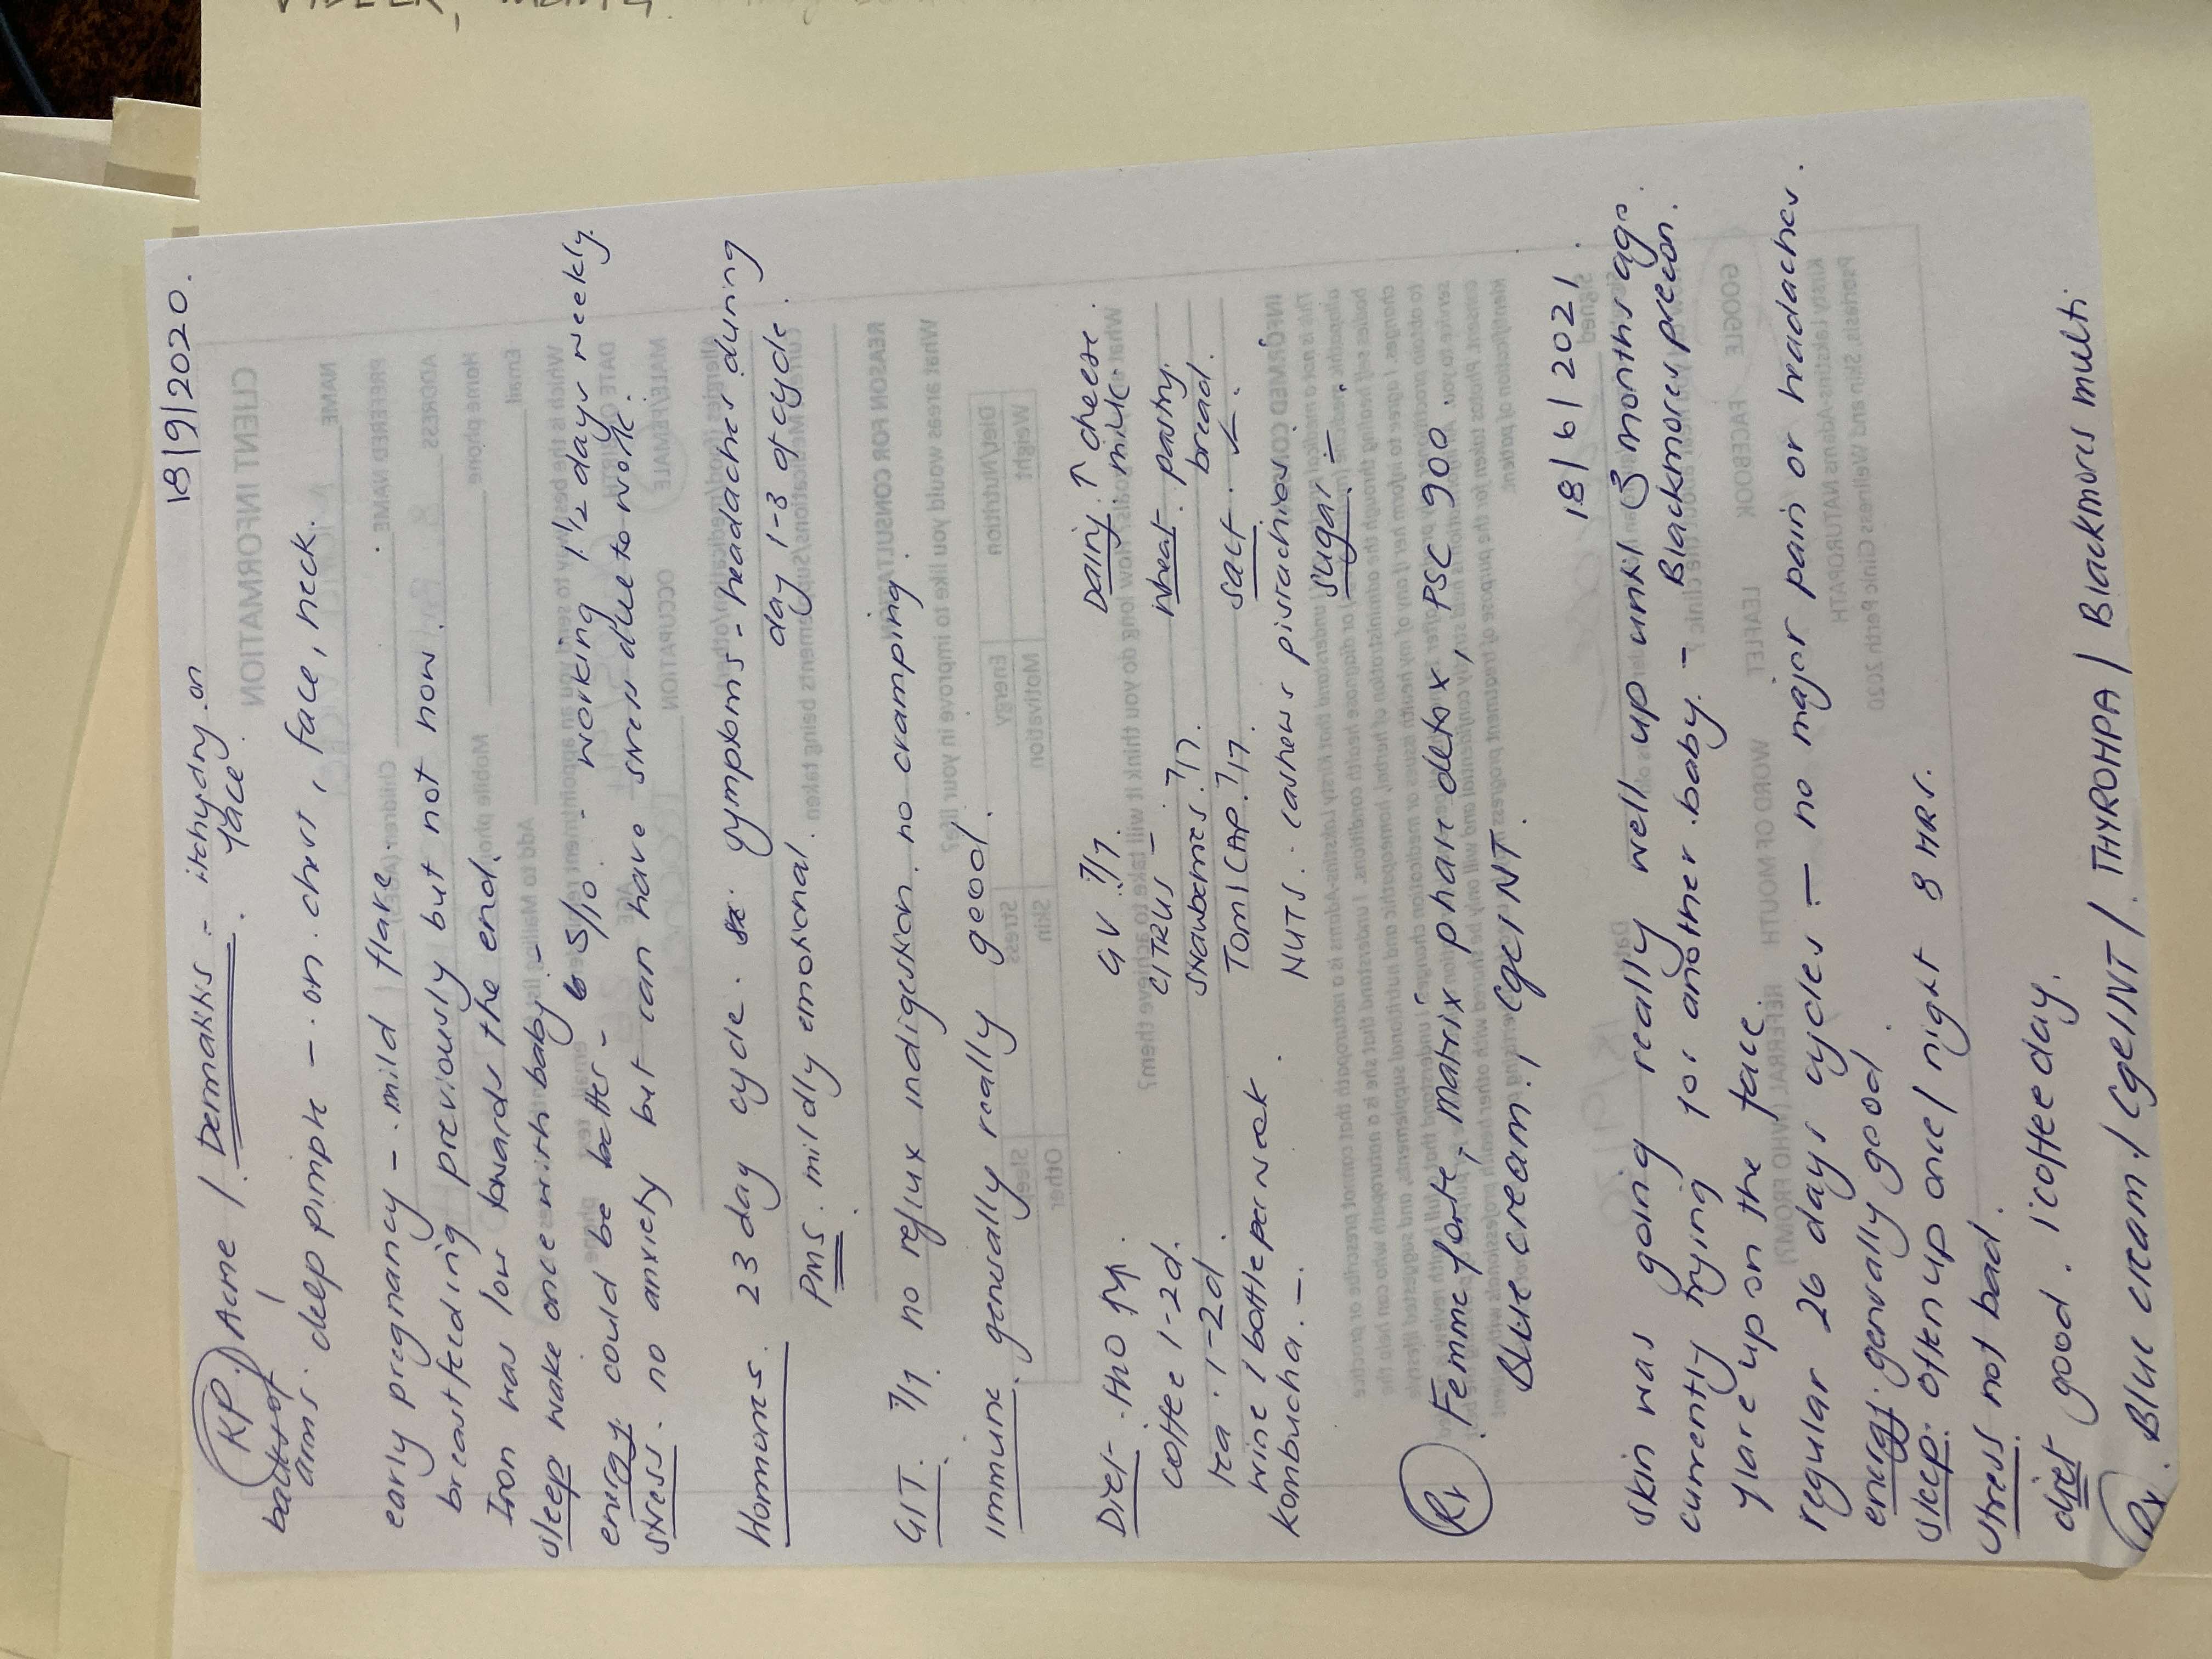 18/9/2020.
KP. Acne / Dermatitis - itchy dry on
back of face.
arms. deep pimple - on chest, face, neck.
early pregnancy - mild flare.
breastfeeding previously but not now.
Iron was low towards the end.
sleep wake once with baby -
energy could be better - 5/10. - working 1 1/2 days weekly.
stress. no anxiety but can have stress due to work.
Hormones. 23 day cycle. symptoms - headaches during
PMS. mildly emotional. day 1-3 of cycle.
GIT. 7/7. no reflux indigestion. no cramping.
immune. generally really good.
Diet - H2O GV 7/7. Dairy. ↑ cheese.
milk.
coffee 1-2d. CITRUS - wheat. pastry.
tea. 1-2d. strawberries. 7/7. bread.
wine 1 bottle per week TOM/CAP. 7/7. salt. ✓.
kombucha. -. NUTS. cashews pistachios
sugar -.
Rx. Femme forte, matrix phase detox, PSC 900.
Blue cream. / CgelNT.
18/6/2021.
skin was going really well up until 3 months ago.
currently trying for another baby. - Blackmores precon.
flare up on the face
regular 26 days cycles - no major pain or headaches.
energy. generally good.
sleep. often up once/night 8 HRS.
stress. not bad.
diet good. 1 coffee day.
Rx. Blue cream. / CgelNT /. THYROHPA / Blackmores multi.